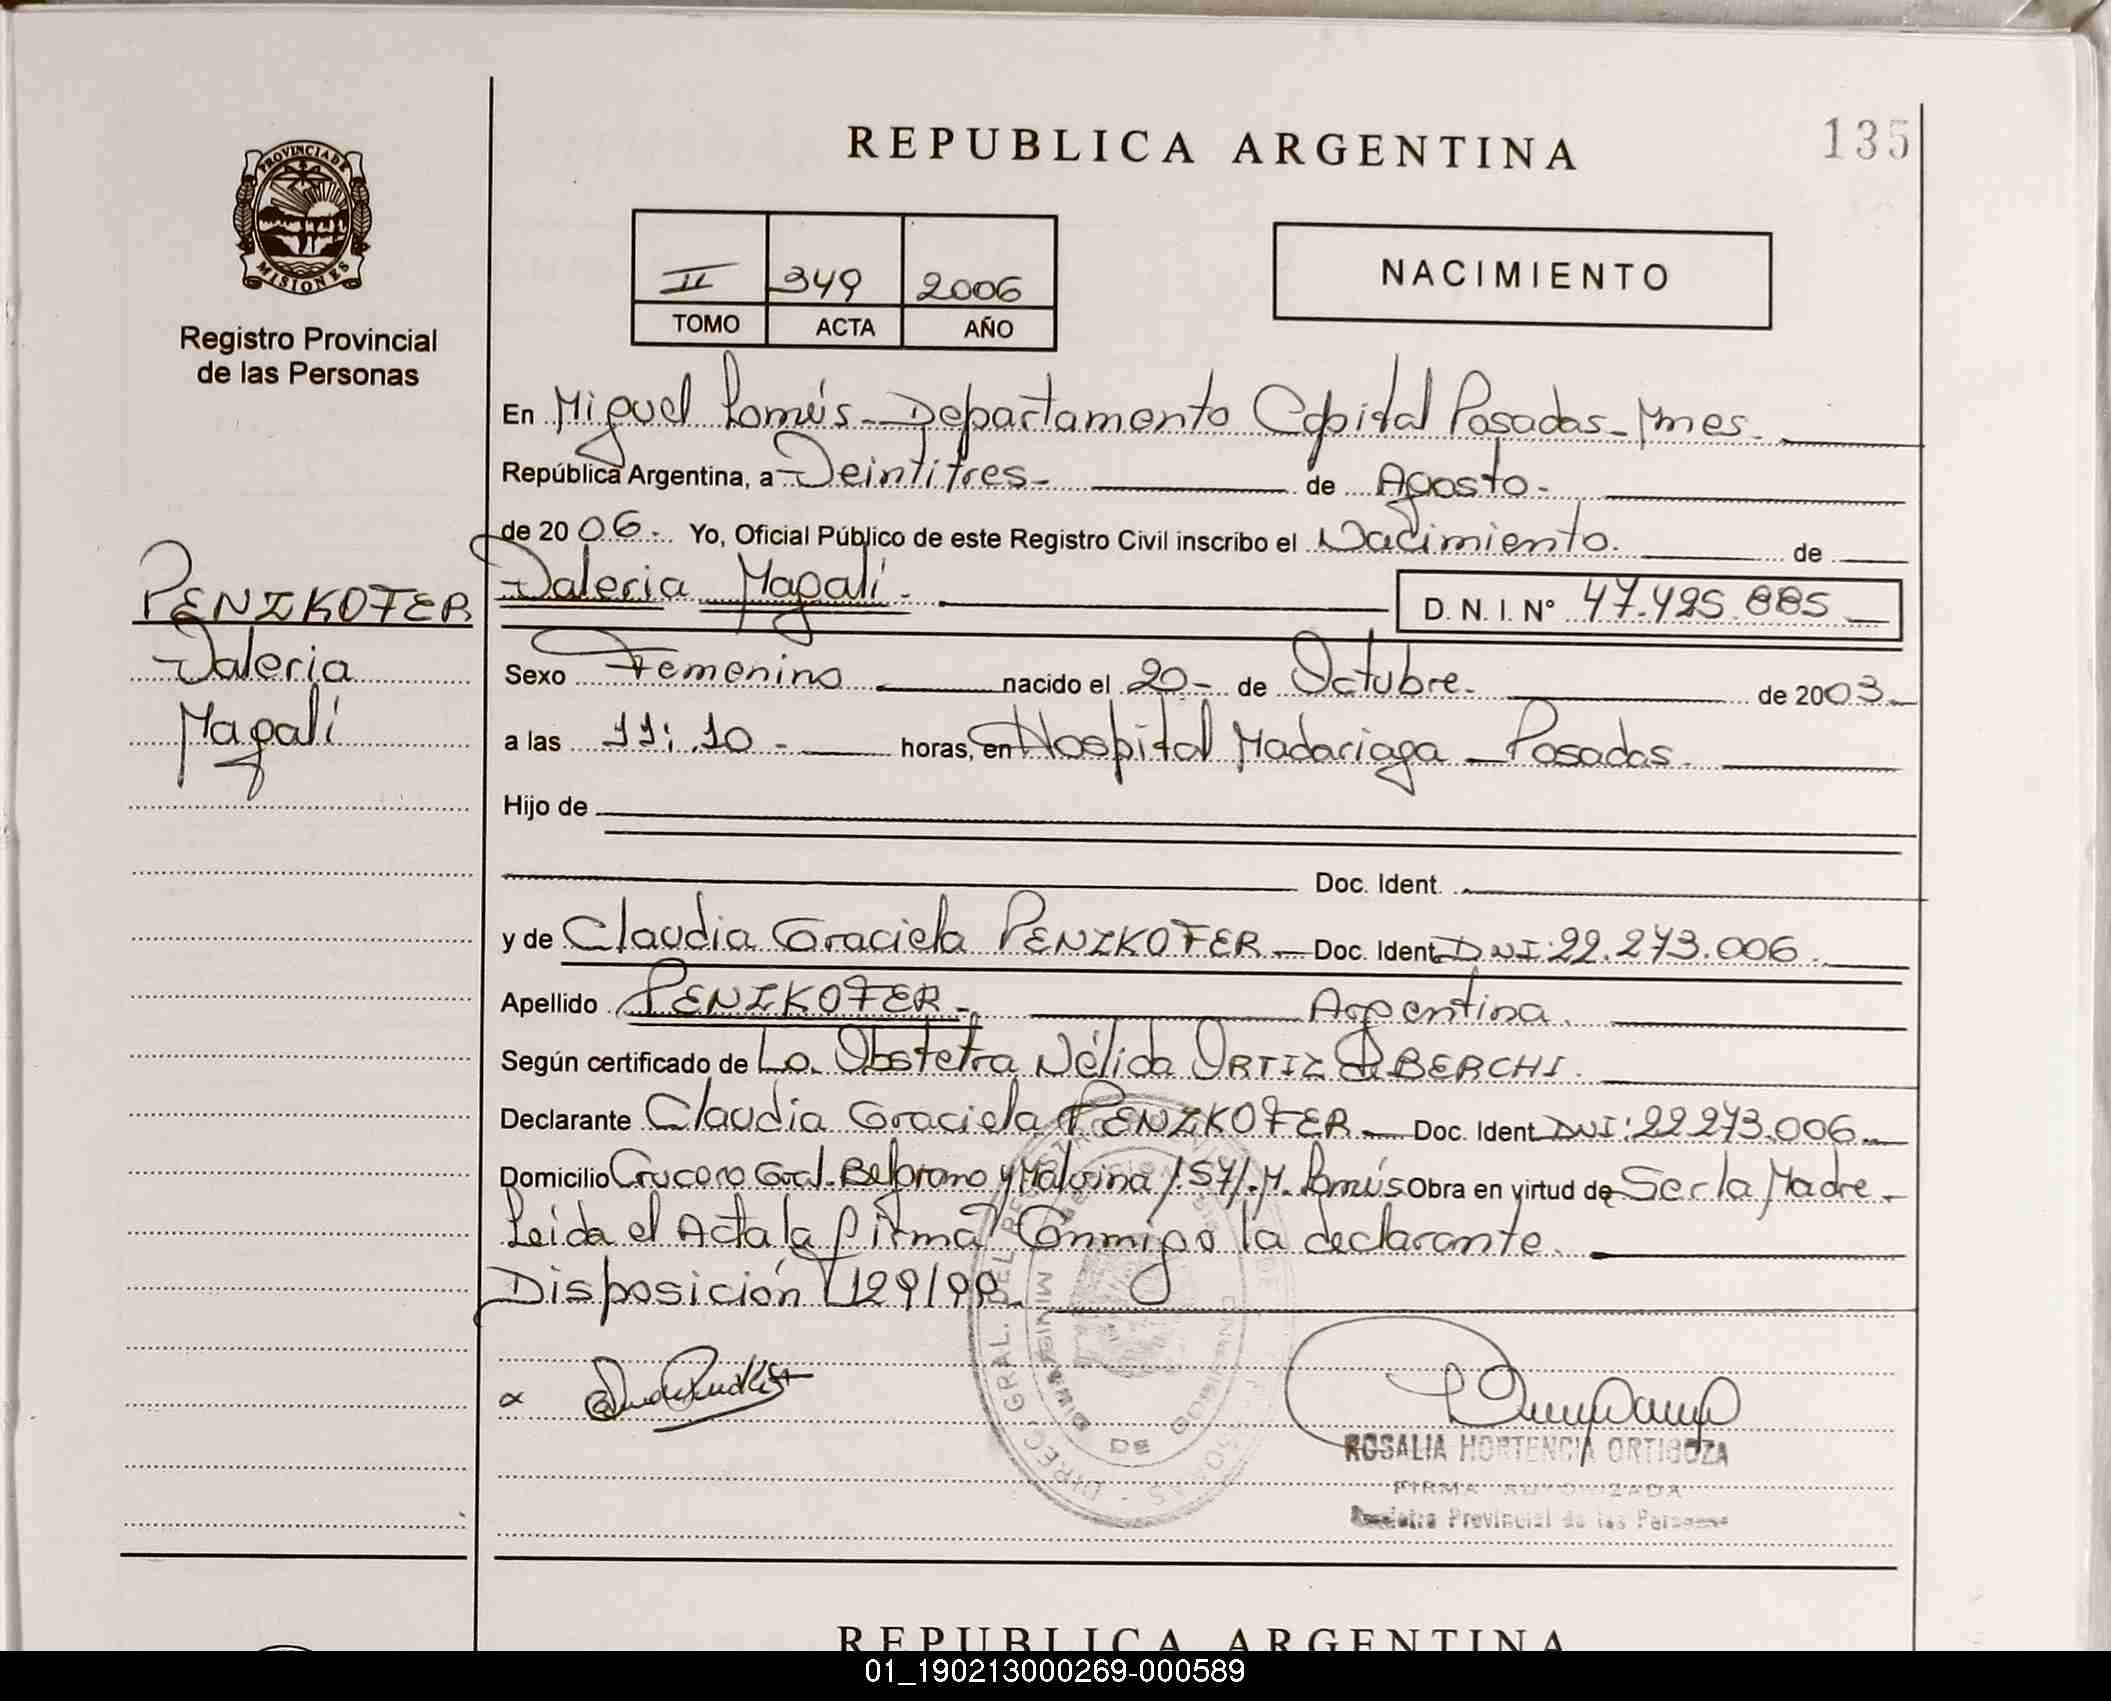 REPUBLICA ARGENTINA
135
PROVINCIA DE
MISIONES
Registro Provincial
de las Personas
II 349 2006
TOMO ACTA AÑO
NACIMIENTO
En Miguel Lanús - Departamento Capital Posadas - Mnes.
República Argentina, a Veintitres - de Agosto -
de 2006 - Yo, Oficial Público de este Registro Civil inscribo el Nacimiento. de
PENZKOFER
Valeria
Magalí
Valeria Magalí - D. N. I. N° 47.425.885
Sexo Femenino nacido el 20 - de Octubre. de 2003
a las 11:10 - horas, en Hospital Madariaga - Posadas.
Hijo de
Doc. Ident.
y de Claudia Graciela PENZKOFER - Doc. Ident. DNI: 22.273.006
Apellido PENZKOFER - Argentina.
Según certificado de La Obstetra Nélida ORTIZ de BERCHI.
Declarante Claudia Graciela PENZKOFER - Doc. Ident. DNI: 22.273.006
Domicilio Crucero Gral. Belgrano y Malvina /.57/. M. Lanús Obra en virtud de Ser la Madre -
Leida el Acta la firma Conmigo la declarante.
Disposición 129/99
ROSALIA HORTENCIA ORTIGOZA
FIRMA AUTORIZADA
Registro Provincial de las Personas
REPUBLICA ARGENTINA
01_190213000269-000589